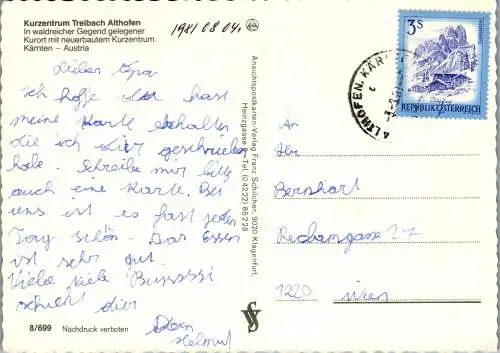 Kurzentrum Treibach Althofen
In waldreicher Gegend gelegener
Kurort mit neuerbautem Kurzentrum.
Kärnten – Austria
1981 08 04.
Lieber Opa
ich hoffe du hast
meine Karte erhalten
die ich dir geschrieben
habe. Schreibe mir bitte
auch eine Karte. Bei
uns ist es fast jeden
Tag schön. Das Essen
ist sehr gut.
Viele viele Bussssi
schickt dir
Dein
Helmut
8/699 Nachdruck verboten
Ansichtspostkarten-Verlag Franz Schilcher, 9020 Klagenfurt,
Heinzgasse Tel. (0 42 22) 85 2 28
3 S
REPUBLIK ÖSTERREICH
ALTHOFEN, KÄR
An
Bernhart
27
1220 Wien